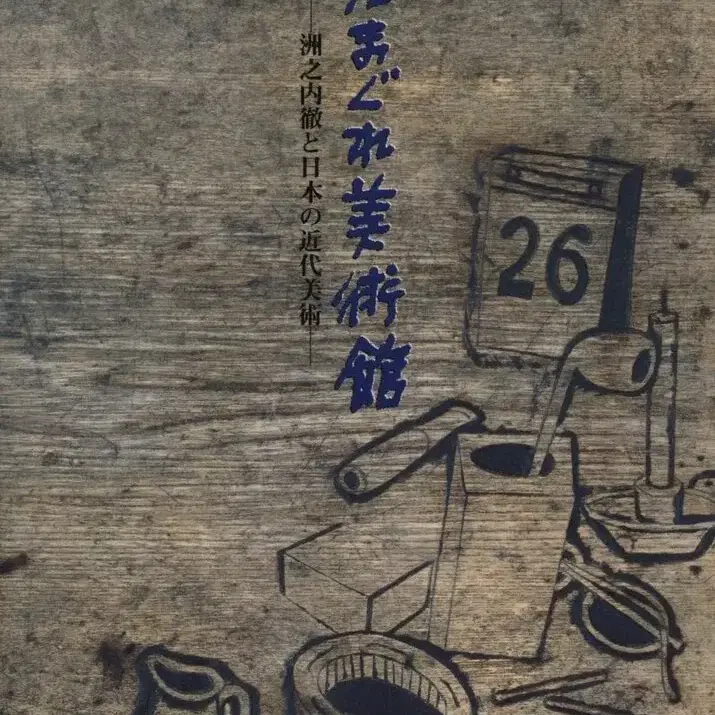 まぐれ美術館
―洲之内徹と日本の近代美術―
26